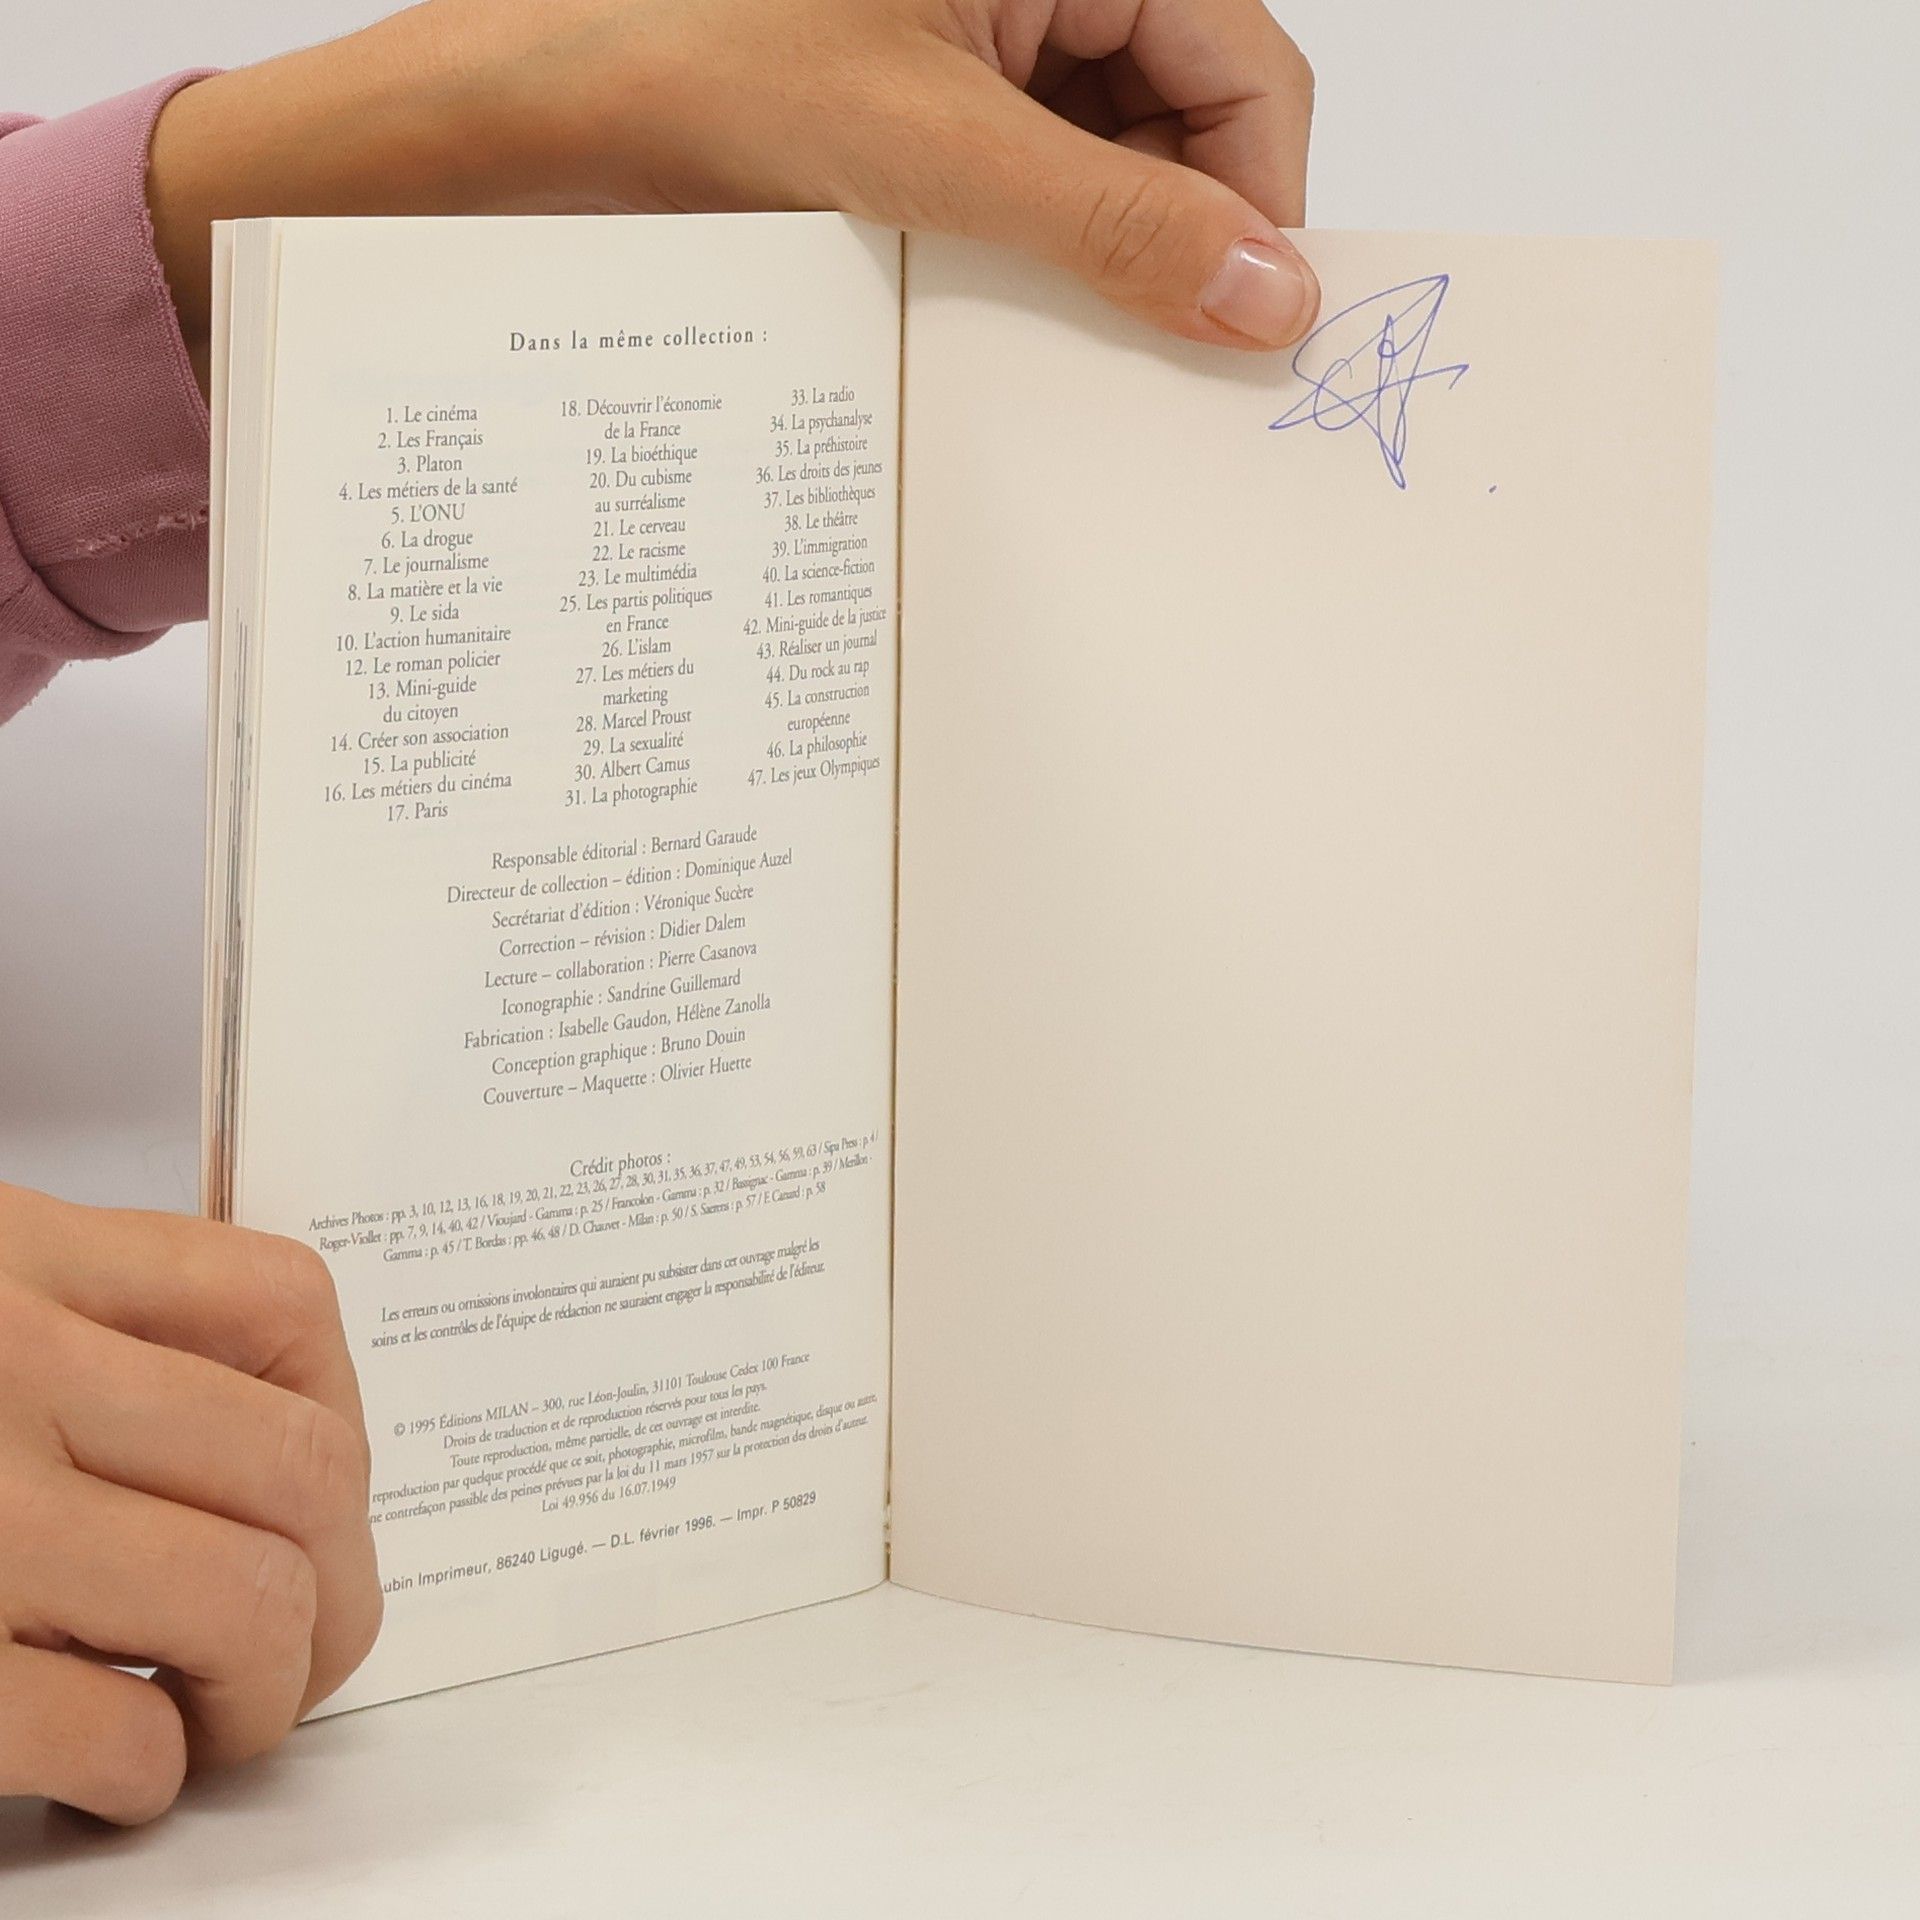 Dans la même collection :
1. Le cinéma
2. Les Français
3. Platon
4. Les métiers de la santé
5. L'ONU
6. La drogue
7. Le journalisme
8. La matière et la vie
9. Le sida
10. L'action humanitaire
12. Le roman policier
13. Mini-guide
du citoyen
14. Créer son association
15. La publicité
16. Les métiers du cinéma
17. Paris
18. Découvrir l'économie
de la France
19. La bioéthique
20. Du cubisme
au surréalisme
21. Le cerveau
22. Le racisme
23. Le multimédia
25. Les partis politiques
en France
26. L'islam
27. Les métiers du
marketing
28. Marcel Proust
29. La sexualité
30. Albert Camus
31. La photographie
33. La radio
34. La psychanalyse
35. La préhistoire
36. Les droits des jeunes
37. Les bibliothèques
38. Le théâtre
39. L'immigration
40. La science-fiction
41. Les romantiques
42. Mini-guide de la justice
43. Réaliser un journal
44. Du rock au rap
45. La construction
européenne
46. La philosophie
47. Les jeux Olympiques
Responsable éditorial : Bernard Garaude
Directeur de collection – édition : Dominique Auzel
Secrétariat d'édition : Véronique Sucère
Correction – révision : Didier Dalem
Lecture – collaboration : Pierre Casanova
Iconographie : Sandrine Guillemard
Fabrication : Isabelle Gaudon, Hélène Zanolla
Conception graphique : Bruno Douin
Couverture – Maquette : Olivier Huette
Crédit photos :
Archives Photos : pp. 3, 10, 12, 13, 16, 18, 19, 20, 21, 22, 23, 26, 27, 28, 30, 31, 35, 36, 37, 47, 49, 53, 54, 56, 59, 63 / Sipa Press : p. 4 /
Roger-Viollet : pp. 7, 9, 14, 40, 42 / Vioujard - Gamma : p. 25 / Francolon - Gamma : p. 32 / Bassignac - Gamma : p. 39 / Merillon -
Gamma : p. 45 / T. Bordas : pp. 46, 48 / D. Chauvet - Milan : p. 50 / S. Saerens : p. 57 / F. Canard : p. 58
Les erreurs ou omissions involontaires qui auraient pu subsister dans cet ouvrage malgré les
soins et les contrôles de l'équipe de rédaction ne sauraient engager la responsabilité de l'éditeur.
© 1995 Éditions MILAN – 300, rue Léon-Joulin, 31101 Toulouse Cedex 100 France
Droits de traduction et de reproduction réservés pour tous les pays.
Toute reproduction, même partielle, de cet ouvrage est interdite.
reproduction par quelque procédé que ce soit, photographie, microfilm, bande magnétique, disque ou autre,
ne contrefaçon passible des peines prévues par la loi du 11 mars 1957 sur la protection des droits d'auteur.
Loi 49.956 du 16.07.1949
ubin Imprimeur, 86240 Ligugé. — D.L. février 1996. — Impr. P 50829